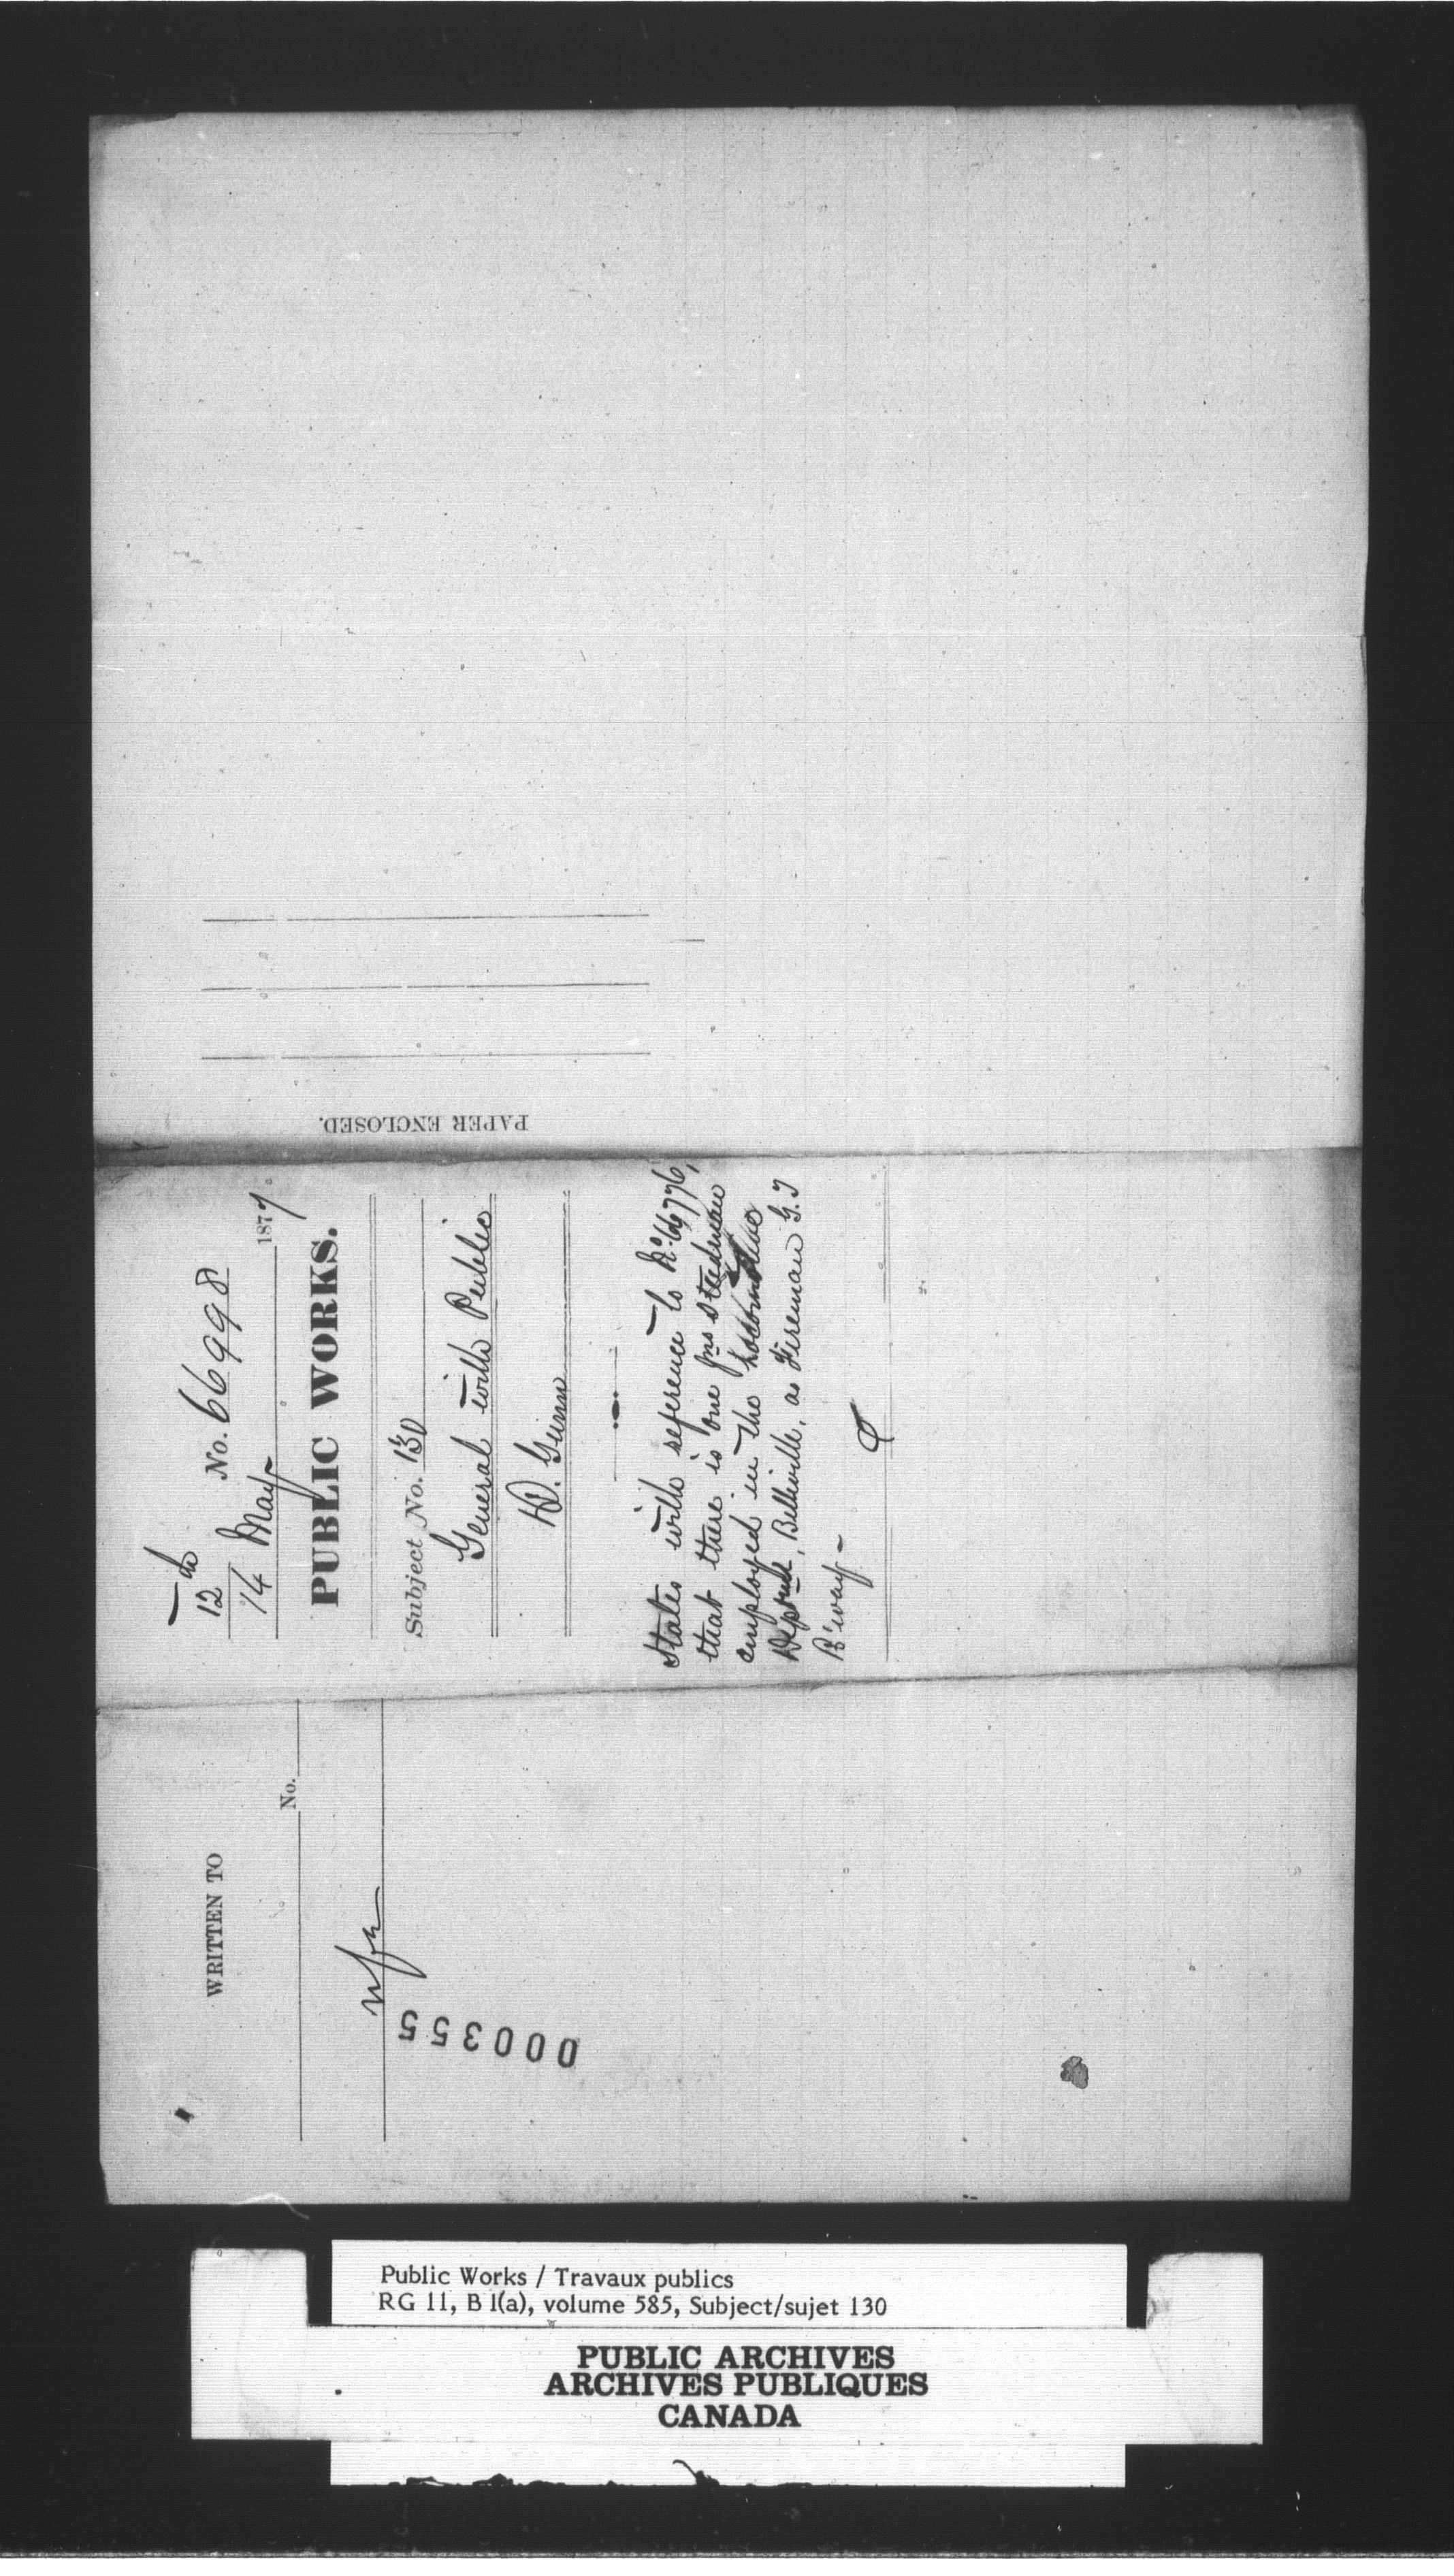 12
No. 66998
14 May 1877
PUBLIC WORKS.
Subject No. 130
General with Public
D. Gunn
States with reference to No. 66776,
that there is one Jns Steedman
employed in the Locomotive
Deptmt, Belleville, as Fireman G.T
R'way -
PAPER ENCLOSED.
WRITTEN TO
No.
000355
Public Works / Travaux publics
RG 11, B 1(a), volume 585, Subject/sujet 130
PUBLIC ARCHIVES
ARCHIVES PUBLIQUES
CANADA